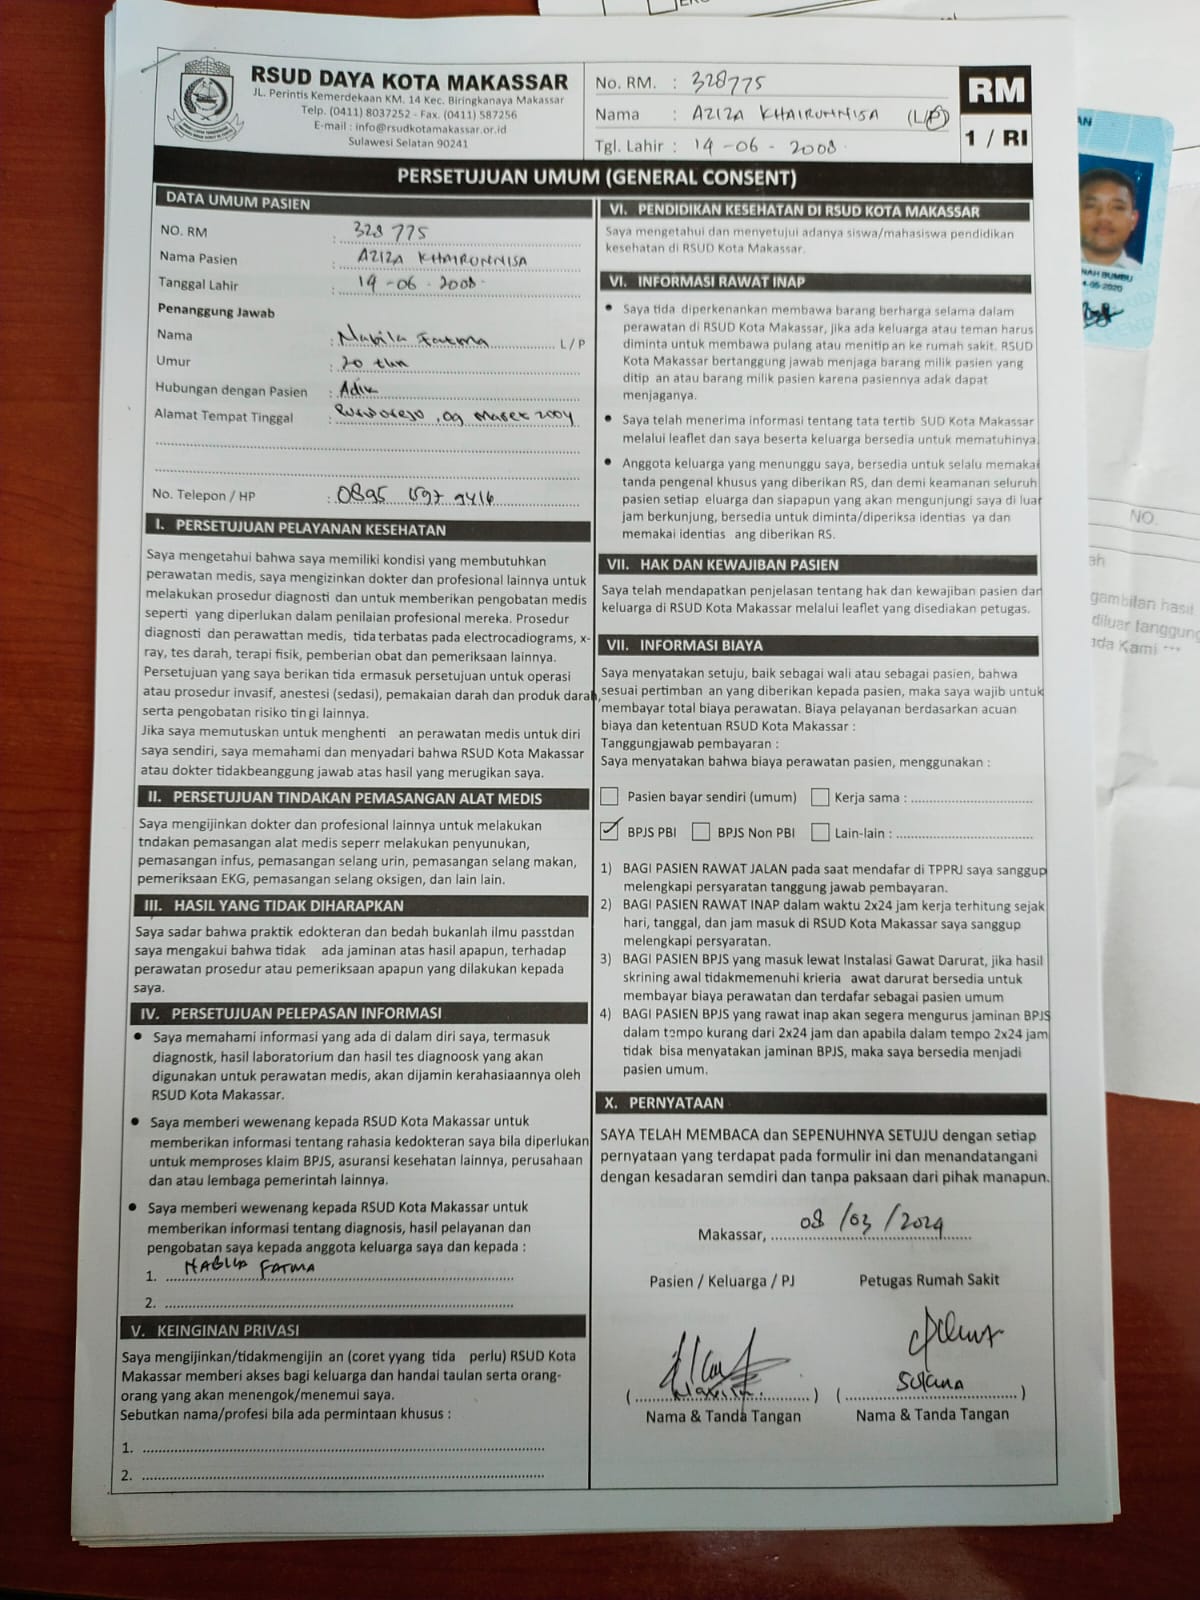 RSUD DAYA KOTA MAKASSAR
JL. Perintis Kemerdekaan KM. 14 Kec. Biringkanaya Makassar
Telp. (0411) 8037252 - Fax. (0411) 587256
E-mail : info@rsudkotamakassar.or.id
Sulawesi Selatan 90241
No. RM. : 328775
Nama : AZIZA KHAIRUNNISA (L/P)
Tgl. Lahir : 14-06-2008
RM
1 / RI
PERSETUJUAN UMUM (GENERAL CONSENT)
DATA UMUM PASIEN
NO. RM : 328775
Nama Pasien : AZIZA KHAIRUNNISA
Tanggal Lahir : 14-06-2008
Penanggung Jawab
Nama : Nabila Fatma L/P
Umur : 20 thn
Hubungan dengan Pasien : Adik
Alamat Tempat Tinggal : Purworejo, 09 Maret 2004
No. Telepon / HP : 0895 1597 9416
I. PERSETUJUAN PELAYANAN KESEHATAN
Saya mengetahui bahwa saya memiliki kondisi yang membutuhkan
perawatan medis, saya mengizinkan dokter dan profesional lainnya untuk
melakukan prosedur diagnosti dan untuk memberikan pengobatan medis
seperti yang diperlukan dalam penilaian profesional mereka. Prosedur
diagnosti dan perawattan medis, tida terbatas pada electrocadiograms, x-
ray, tes darah, terapi fisik, pemberian obat dan pemeriksaan lainnya.
Persetujuan yang saya berikan tida ermasuk persetujuan untuk operasi
atau prosedur invasif, anestesi (sedasi), pemakaian darah dan produk darah,
serta pengobatan risiko tin gi lainnya.
Jika saya memutuskan untuk menghenti an perawatan medis untuk diri
saya sendiri, saya memahami dan menyadari bahwa RSUD Kota Makassar
atau dokter tidakbeanggung jawab atas hasil yang merugikan saya.
II. PERSETUJUAN TINDAKAN PEMASANGAN ALAT MEDIS
Saya mengijinkan dokter dan profesional lainnya untuk melakukan
tndakan pemasangan alat medis seperr melakukan penyunukan,
pemasangan infus, pemasangan selang urin, pemasangan selang makan,
pemeriksaan EKG, pemasangan selang oksigen, dan lain lain.
III. HASIL YANG TIDAK DIHARAPKAN
Saya sadar bahwa praktik edokteran dan bedah bukanlah ilmu passtdan
saya mengakui bahwa tidak ada jaminan atas hasil apapun, terhadap
perawatan prosedur atau pemeriksaan apapun yang dilakukan kepada
saya.
IV. PERSETUJUAN PELEPASAN INFORMASI
• Saya memahami informasi yang ada di dalam diri saya, termasuk
diagnostk, hasil laboratorium dan hasil tes diagnoosk yang akan
digunakan untuk perawatan medis, akan dijamin kerahasiaannya oleh
RSUD Kota Makassar.
• Saya memberi wewenang kepada RSUD Kota Makassar untuk
memberikan informasi tentang rahasia kedokteran saya bila diperlukan
untuk memproses klaim BPJS, asuransi kesehatan lainnya, perusahaan
dan atau lembaga pemerintah lainnya.
• Saya memberi wewenang kepada RSUD Kota Makassar untuk
memberikan informasi tentang diagnosis, hasil pelayanan dan
pengobatan saya kepada anggota keluarga saya dan kepada :
1. NABILA FATMA
2.
V. KEINGINAN PRIVASI
Saya mengijinkan/tidakmengijin an (coret yyang tida perlu) RSUD Kota
Makassar memberi akses bagi keluarga dan handai taulan serta orang-
orang yang akan menengok/menemui saya.
Sebutkan nama/profesi bila ada permintaan khusus :
1.
2.
VI. PENDIDIKAN KESEHATAN DI RSUD KOTA MAKASSAR
Saya mengetahui dan menyetujui adanya siswa/mahasiswa pendidikan
kesehatan di RSUD Kota Makassar.
VI. INFORMASI RAWAT INAP
• Saya tida diperkenankan membawa barang berharga selama dalam
perawatan di RSUD Kota Makassar, jika ada keluarga atau teman harus
diminta untuk membawa pulang atau menitip an ke rumah sakit. RSUD
Kota Makassar bertanggung jawab menjaga barang milik pasien yang
ditip an atau barang milik pasien karena pasiennya adak dapat
menjaganya.
• Saya telah menerima informasi tentang tata tertib SUD Kota Makassar
melalui leaflet dan saya beserta keluarga bersedia untuk mematuhinya.
• Anggota keluarga yang menunggu saya, bersedia untuk selalu memakai
tanda pengenal khusus yang diberikan RS, dan demi keamanan seluruh
pasien setiap eluarga dan siapapun yang akan mengunjungi saya di luar
jam berkunjung, bersedia untuk diminta/diperiksa identias ya dan
memakai identias ang diberikan RS.
VII. HAK DAN KEWAJIBAN PASIEN
Saya telah mendapatkan penjelasan tentang hak dan kewajiban pasien dan
keluarga di RSUD Kota Makassar melalui leaflet yang disediakan petugas.
VII. INFORMASI BIAYA
Saya menyatakan setuju, baik sebagai wali atau sebagai pasien, bahwa
sesuai pertimban an yang diberikan kepada pasien, maka saya wajib untuk
membayar total biaya perawatan. Biaya pelayanan berdasarkan acuan
biaya dan ketentuan RSUD Kota Makassar :
Tanggungjawab pembayaran :
Saya menyatakan bahwa biaya perawatan pasien, menggunakan :
Pasien bayar sendiri (umum) Kerja sama :
✓ BPJS PBI BPJS Non PBI Lain-lain :
1) BAGI PASIEN RAWAT JALAN pada saat mendafar di TPPRJ saya sanggup
melengkapi persyaratan tanggung jawab pembayaran.
2) BAGI PASIEN RAWAT INAP dalam waktu 2x24 jam kerja terhitung sejak
hari, tanggal, dan jam masuk di RSUD Kota Makassar saya sanggup
melengkapi persyaratan.
3) BAGI PASIEN BPJS yang masuk lewat Instalasi Gawat Darurat, jika hasil
skrining awal tidakmemenuhi krieria awat darurat bersedia untuk
membayar biaya perawatan dan terdafar sebagai pasien umum
4) BAGI PASIEN BPJS yang rawat inap akan segera mengurus jaminan BPJS
dalam tempo kurang dari 2x24 jam dan apabila dalam tempo 2x24 jam
tidak bisa menyatakan jaminan BPJS, maka saya bersedia menjadi
pasien umum.
X. PERNYATAAN
SAYA TELAH MEMBACA dan SEPENUHNYA SETUJU dengan setiap
pernyataan yang terdapat pada formulir ini dan menandatangani
dengan kesadaran semdiri dan tanpa paksaan dari pihak manapun.
Makassar, 08/03/2024
Pasien / Keluarga / PJ Petugas Rumah Sakit
Nama & Tanda Tangan Nama & Tanda Tangan
NAH BUMBU
4-05-2020
NO.
ah
gambilan hasil
diluar tanggung
nda Kami ***